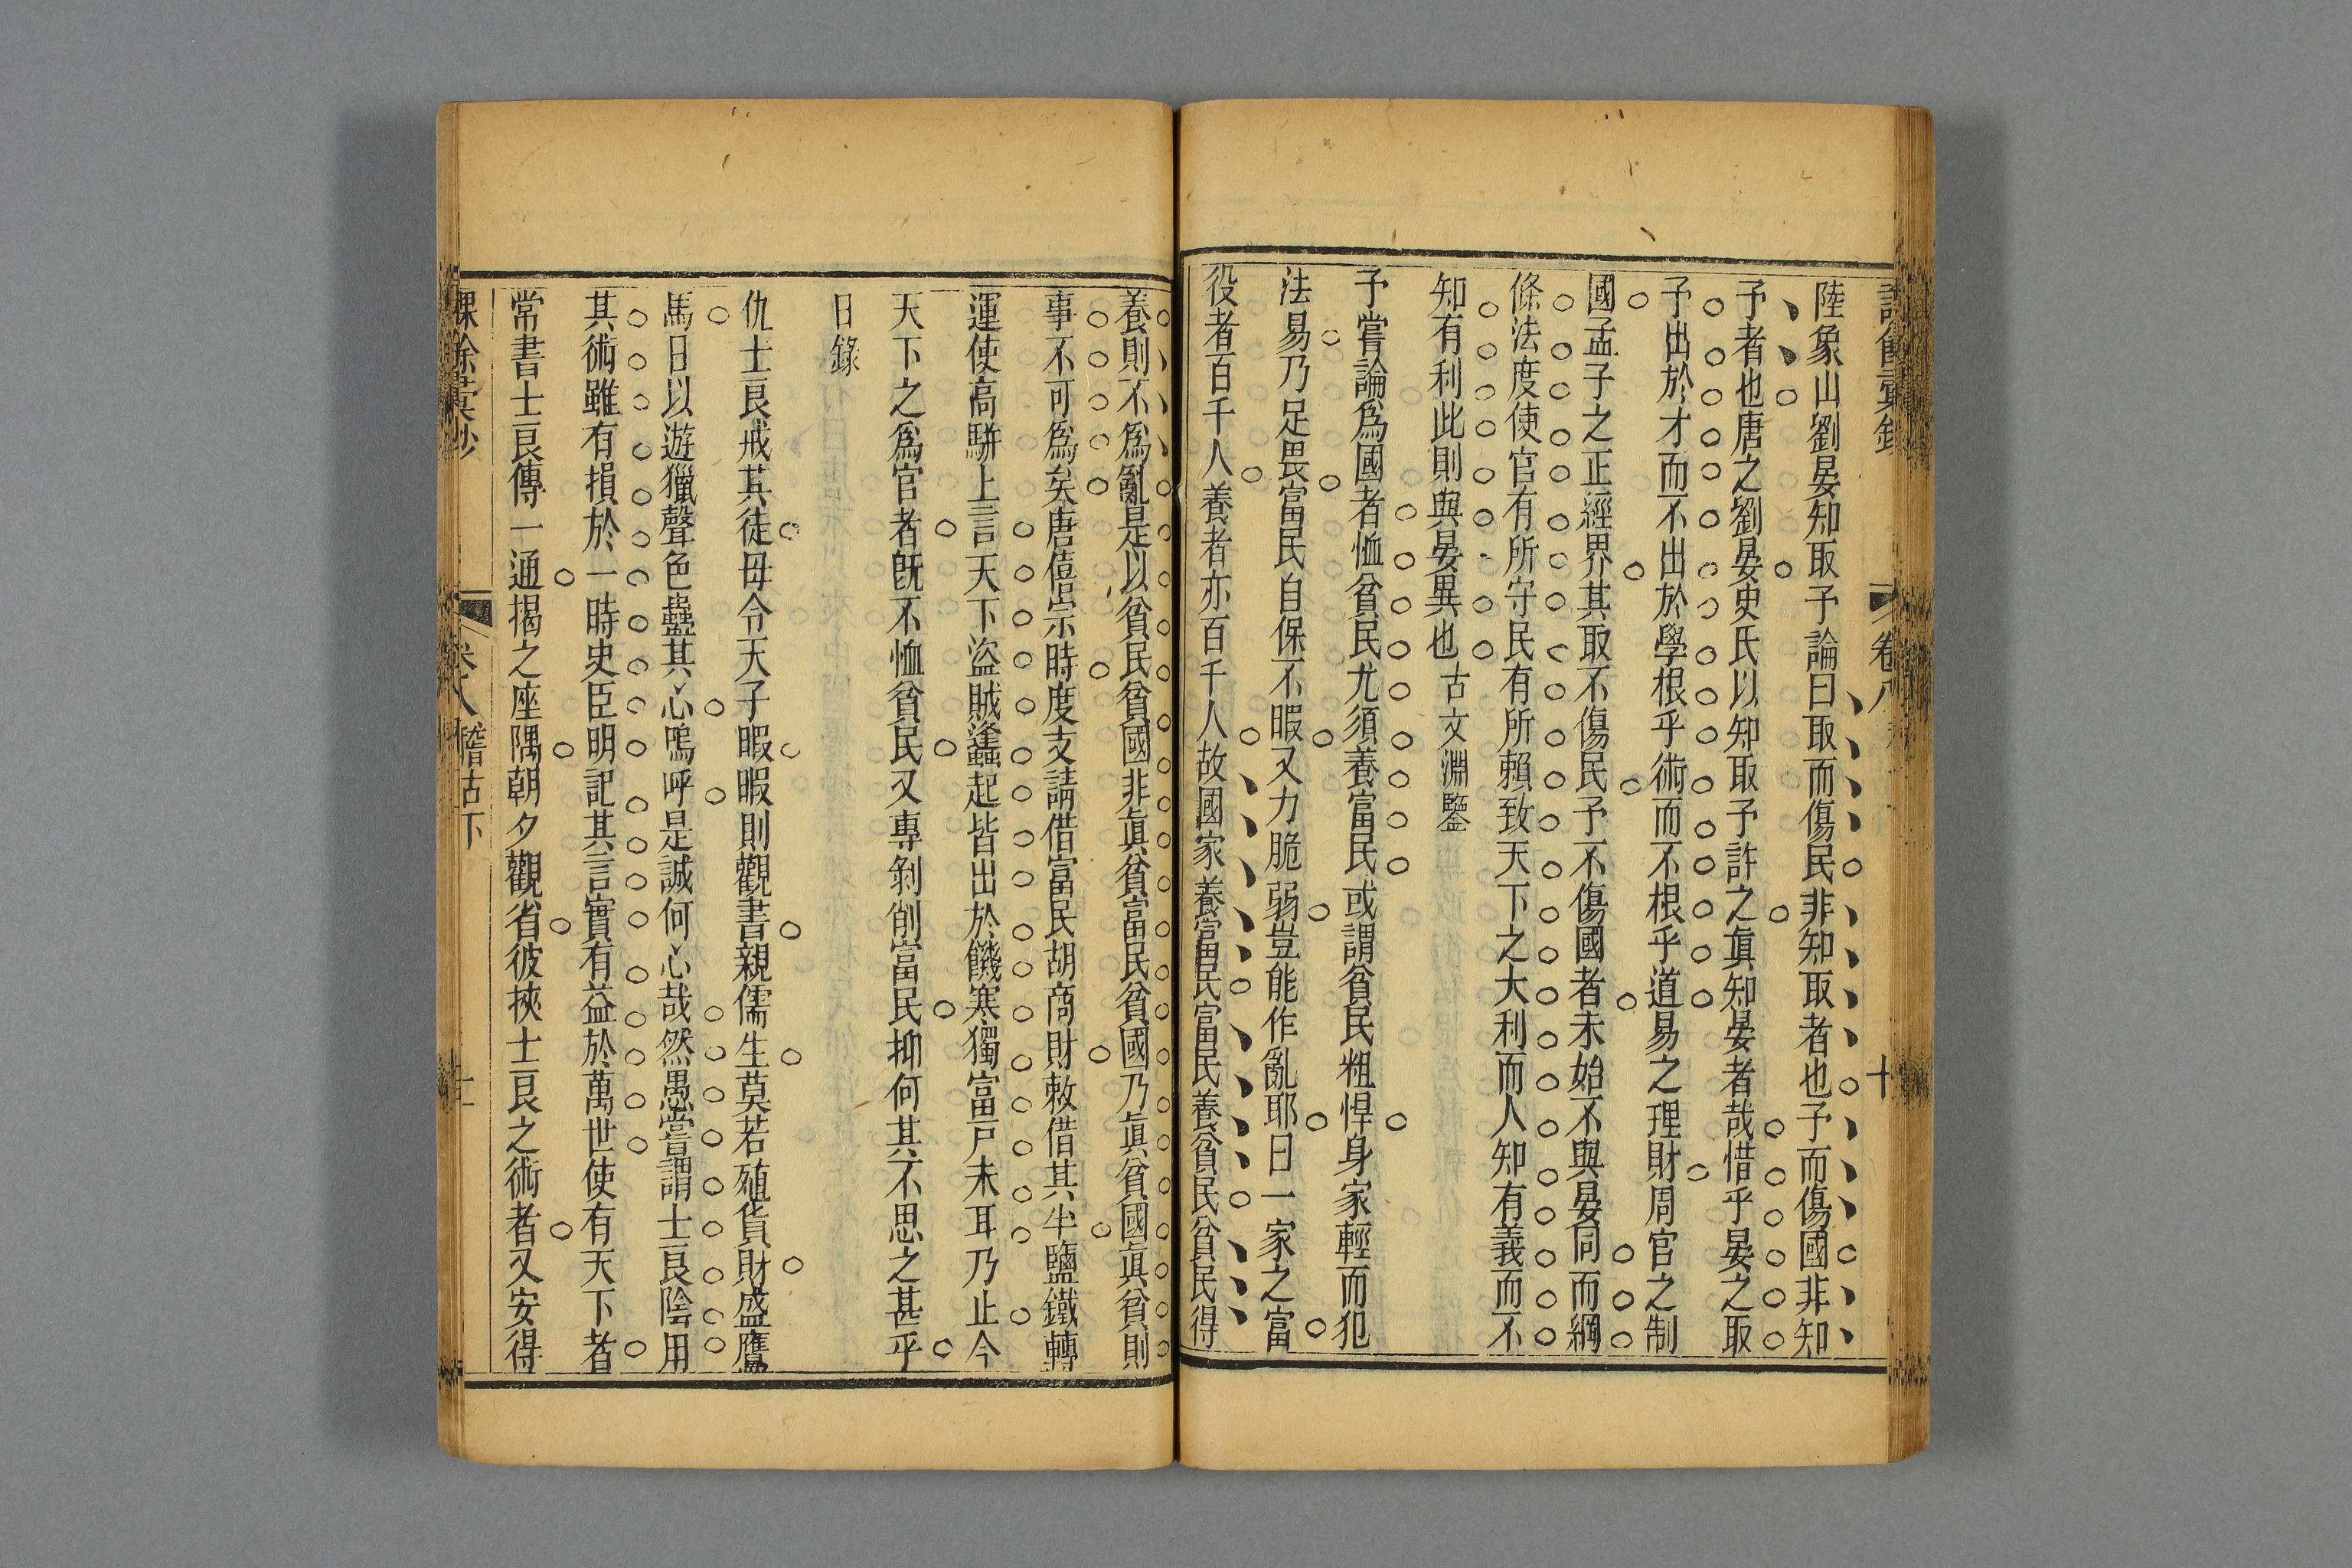 卷八
十
陸象山劉晏知取予論曰取而傷民非知取者也予而傷國非知
予者也唐之劉晏史氏以知取予許之眞知晏者哉惜乎晏之取
予出於才而不出於學根乎術而不根乎道易之理財周官之制
國孟子之正經界其取不傷民予不傷國者未始不與晏同而綱
條法度使官有所守民有所賴致天下之大利而人知有義而不
知有利此則與晏異也古文淵鑒
予嘗論爲國者恤貧民尤須養富民或謂貧民粗悍身家輕而犯
法易乃足畏富民自保不暇又力脆弱豈能作亂耶曰一家之富
役者百千人養者亦百千人故國家養富民富民養貧民貧民得
養則不爲亂是以貧民貧國非眞貧富民貧國乃眞貧國眞貧則
事不可爲矣唐僖宗時度支請借富民胡商財敕借其半鹽鐵轉
運使高駢上言天下盜賊蠭起皆出於饑寒獨富戶未耳乃止今
天下之爲官者旣不恤貧民又專剝削富民抑何其不思之甚乎
日錄
仇士良戒其徒毋令天子暇暇則觀書親儒生莫若殖貨財盛鷹
馬日以遊獵聲色蠱其心嗚呼是誠何心哉然愚嘗謂士良陰用
其術雖有損於一時史臣明記其言實有益於萬世使有天下者
常書士良傳一通揭之座隅朝夕觀省彼挾士良之術者又安得
卷八 稽古下